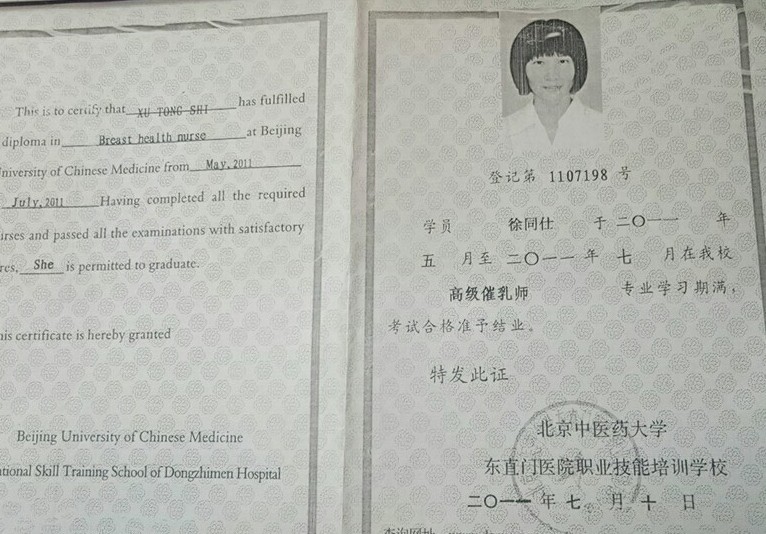 This is to certify that XU TONG SHI has fulfilled
diploma in Breast health nurse at Beijing
University of Chinese Medicine from May, 2011
July, 2011 Having completed all the required
and passed all the examinations with satisfactory
She is permitted to graduate.
certificate is hereby granted
Beijing University of Chinese Medicine
Skill Training School of Dongzhimen Hospital
登记第 1107198 号
学员 徐同仕 于 二〇一一 年
五 月至 二〇一一 年 七 月在我校
高级催乳师 专业学习期满，
考试合格准予结业。
特发此证
北京中医药大学
东直门医院职业技能培训学校
二〇一一 年 七 月 十 日